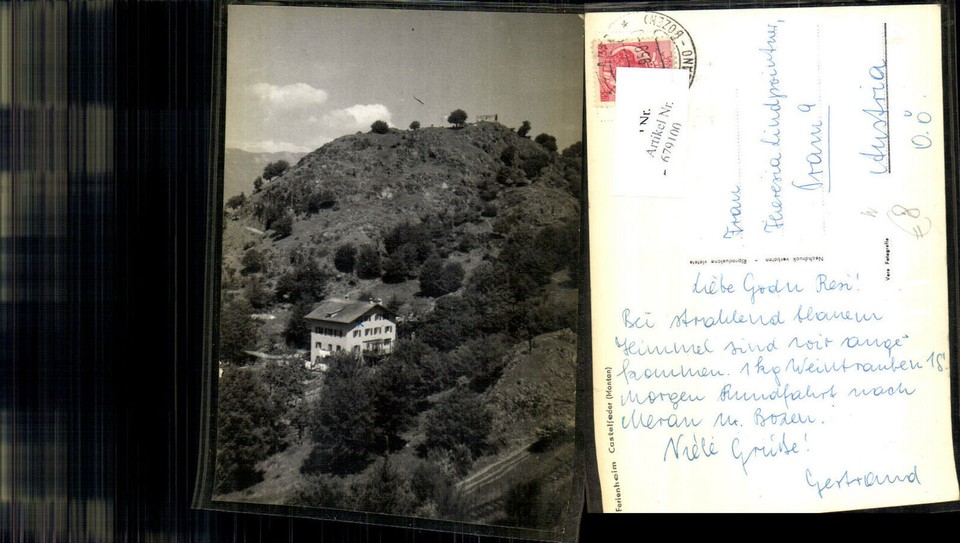 BOZEN
' Nr.
Artikel Nr.
679100
Frau
Theresia Lindpointner,
Pram 9
Austria
O.Ö
€ 8
Nachdruck verboten - Riproduzione vietata
Vera Fotografia
Ferienheim Castelfeder (Montan)
Liebe Godn Resi!
Bei strahlend blauem
Himmel sind wir ange-
kommen. 1 kg Weintrauben 1S.
Morgen Rundfahrt nach
Meran u. Bozen.
Viele Grüße!
Gertraud